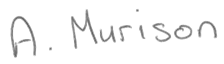 A. Murison